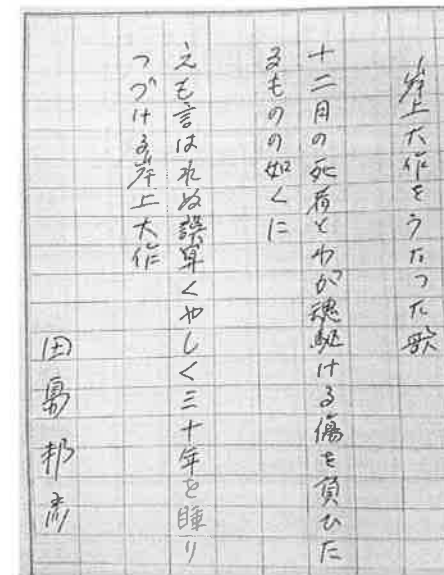 岸上大作をうたった歌
十二月の死者とわが魂駆ける傷を負ひた
るものの如くに
えも言はれぬ誤算くやしく三十年を睡り
つづける岸上大作
田島邦彦